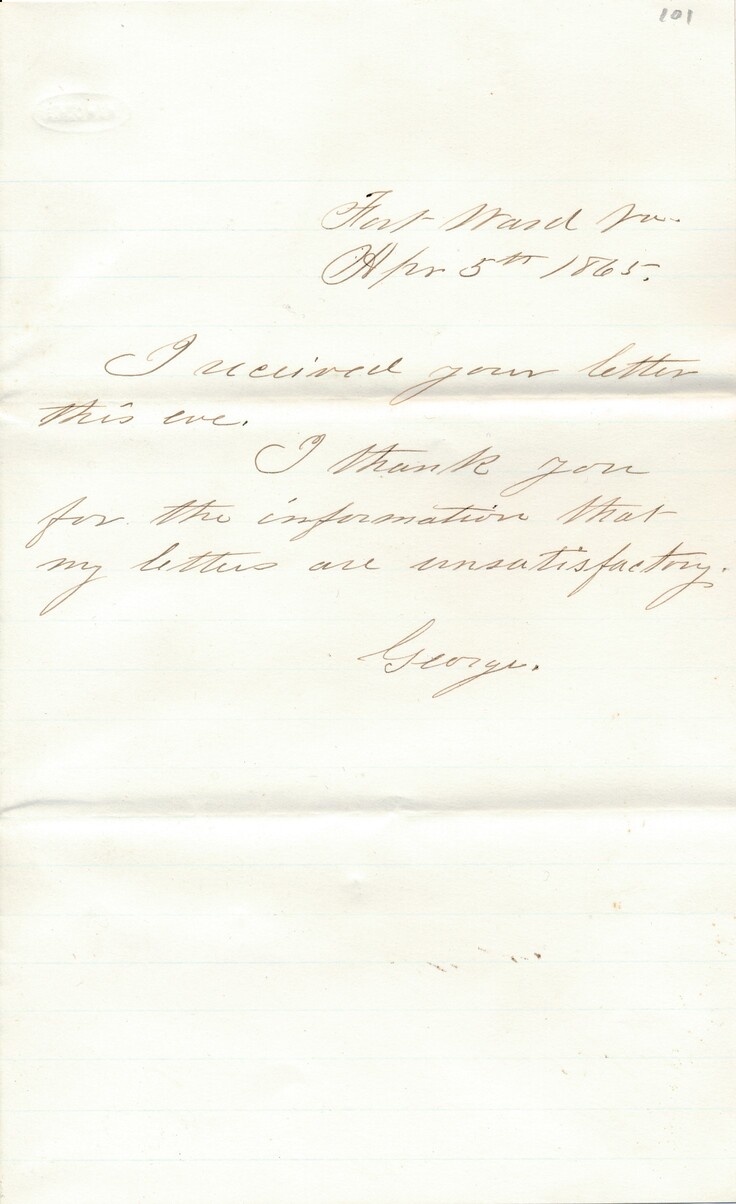 101
Fort Ward Va.
Apr 5th 1865.
I received your letter
this eve.
I thank you
for the information that
my letters are unsatisfactory.
George.